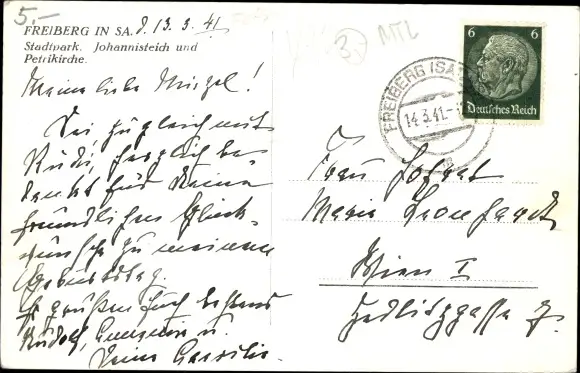 5.-
FREIBERG IN SA. d. 13.3.41
Stadtpark. Johannisteich und
Petrikirche.
3.- MTL
Meine liebe Mirzel!
Sei zugleich mit
Rudi, herzlich be-
dankt für Deine
freundlichen Glück-
wünsche zu meinem
Geburtstag.
Es grüßen Euch bestens
Rudolf, u.
Deine
FREIBERG (SA
14.3.41
6 6
Deutsches Reich
Frau Hofrat
Marie Leonhardt
Wien I
Zedlitzgasse 7.